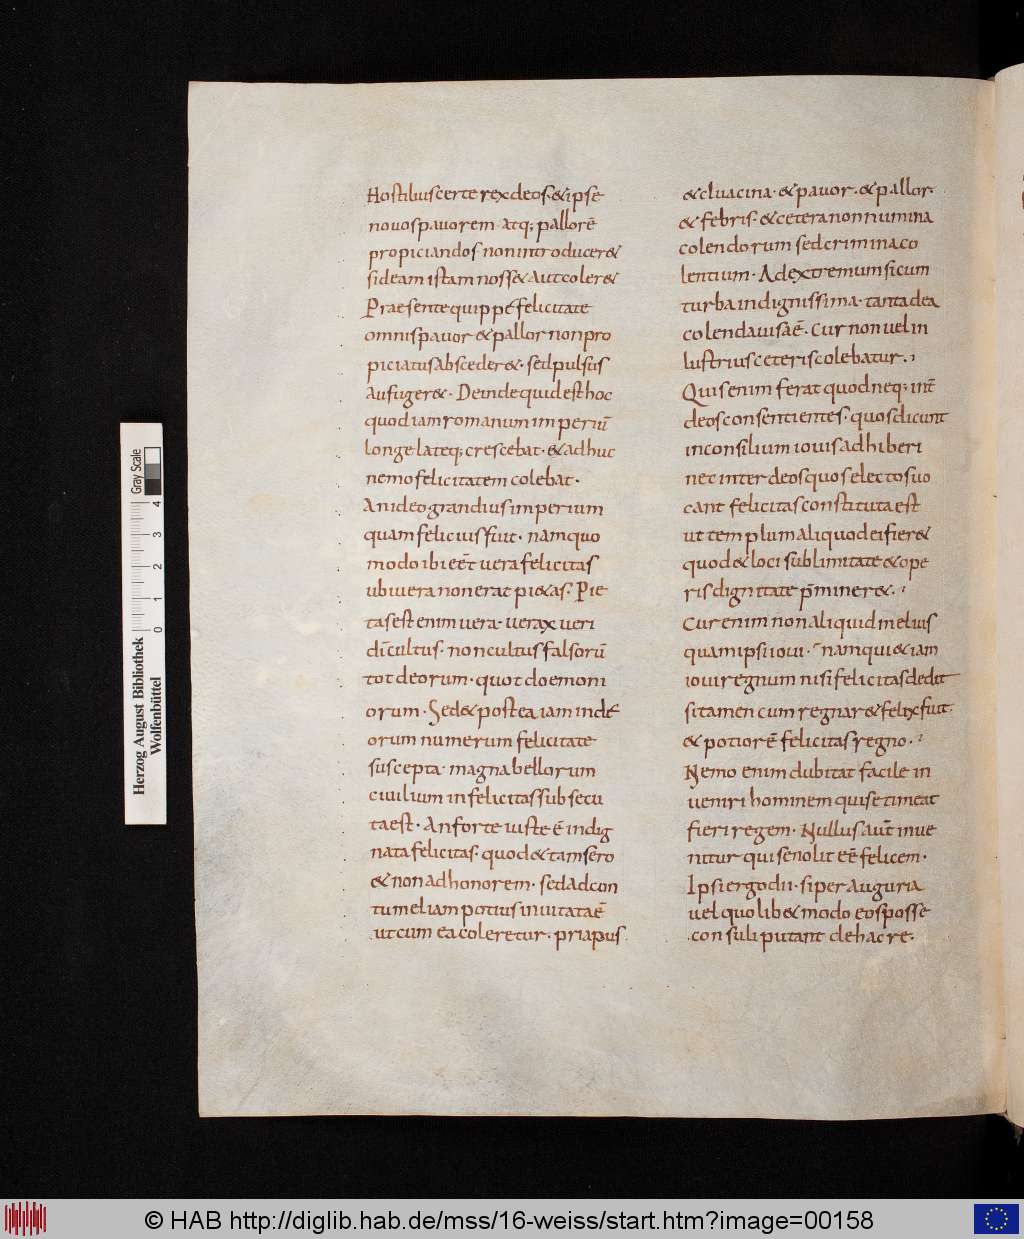 Hostibuscerte rexdeos·&ipse
nouospauorem atq; pallorē
propiciandos nonintroducer&
sideam istam noss& Autcoler&
Praesentequippe felicitate
omnispauor &pallor nonpro
piciatusAbsceder&· sedpulsus
Aufuger&· Deindequidesthoc
quodiamromanum imperiū
longe lateq; crescebat· &adhuc
nemofelicitatem colebat·
Anideograndiusimperium
quam feliciusfuit· namquo
modo ibieēt uerafelicitas
ubiuera nonerat pi&as· Pie
tasest enim uera· uerax ueri
dī cultus· noncultusfalsorū
tot deorum· quot doemoni
orum· Sed& postea iam inde
orum numerum felicitate
suscepta· magna bellorum
ciuilium infelicitassubsecu
taest· Anforte iuste ē indig
nata felicitas· quod& tamsero
& non adhonorem· sedadcon
tumeliam potius inuitataē
utcum ea coleretur· priapus
&cluacina· &pauor· &pallor·
& febris· &ceteranonnumina
colendorum sedcriminaco
lentium· Adextremumsicum
turba indignissima· tantadea
colendauisaē· Cur non uel in
lustriusceteriscolebatur·
Quisenim ferat quodneq; int̄
deosconsentientes· quosdicunt
inconsilium iouisadhiberi
nec inter deosquoselectosuo
cant felicitasconstitutaest
ut templumaliquodeifier&
quod&loci sublimitate&ope
risdignitate p̄miner&·
Cur enim nonaliquid melius
quamipsiioui· namqui&iam
iouiregnum nisifelicitasdedit
sitamen cum regnar& felixfuit·
& potiorē felicitasregno·
Nemo enim dubitat facile in
ueniri hominem quisetimeat
fieri regem· Nullusaut̄ inue
nitur quisenolit eē felicem·
Ipsi ergodii· siper Auguria
uel quolib&modo eosposse
consuliputant dehac re·
Gray Scale
4
3
2
1
0
Herzog August Bibliothek
Wolfenbüttel
© HAB http://diglib.hab.de/mss/16-weiss/start.htm?image=00158